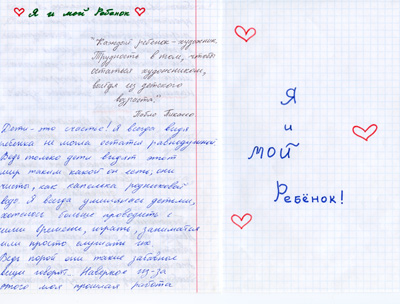 Я и мой Ребенок
"Каждый ребенок - художник.
Трудность в том, чтобы
остаться художником,
выйдя из детского
возраста."
Пабло Пикассо
Дети - это счастье! Я всегда видя
ребенка не могла остатся равнодушной
Ведь только дети видят этот
мир таким какой он есть, они
чисты, как капелька родниковой
воды. Я всегда умилялась детям,
хотелось больше проводить с
ними времени, играть, заниматся
или просто слушать их.
Ведь порой они такие забавные
вещи говорят... Наверное из-за
этого моя прошлая работа
Я
и
МОЙ
Ребёнок!